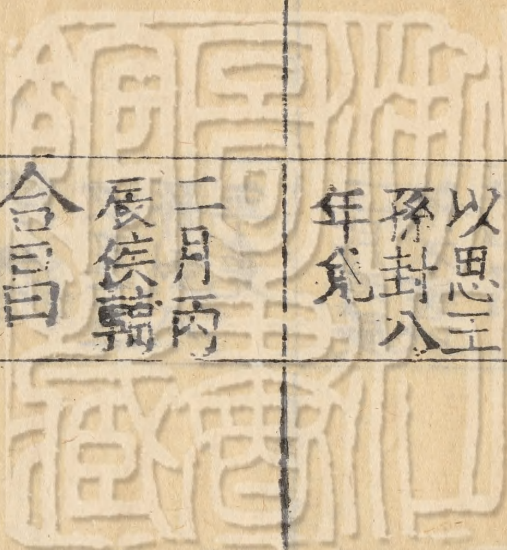 以思王
孫封八
年免
二月丙
辰侯
合昌